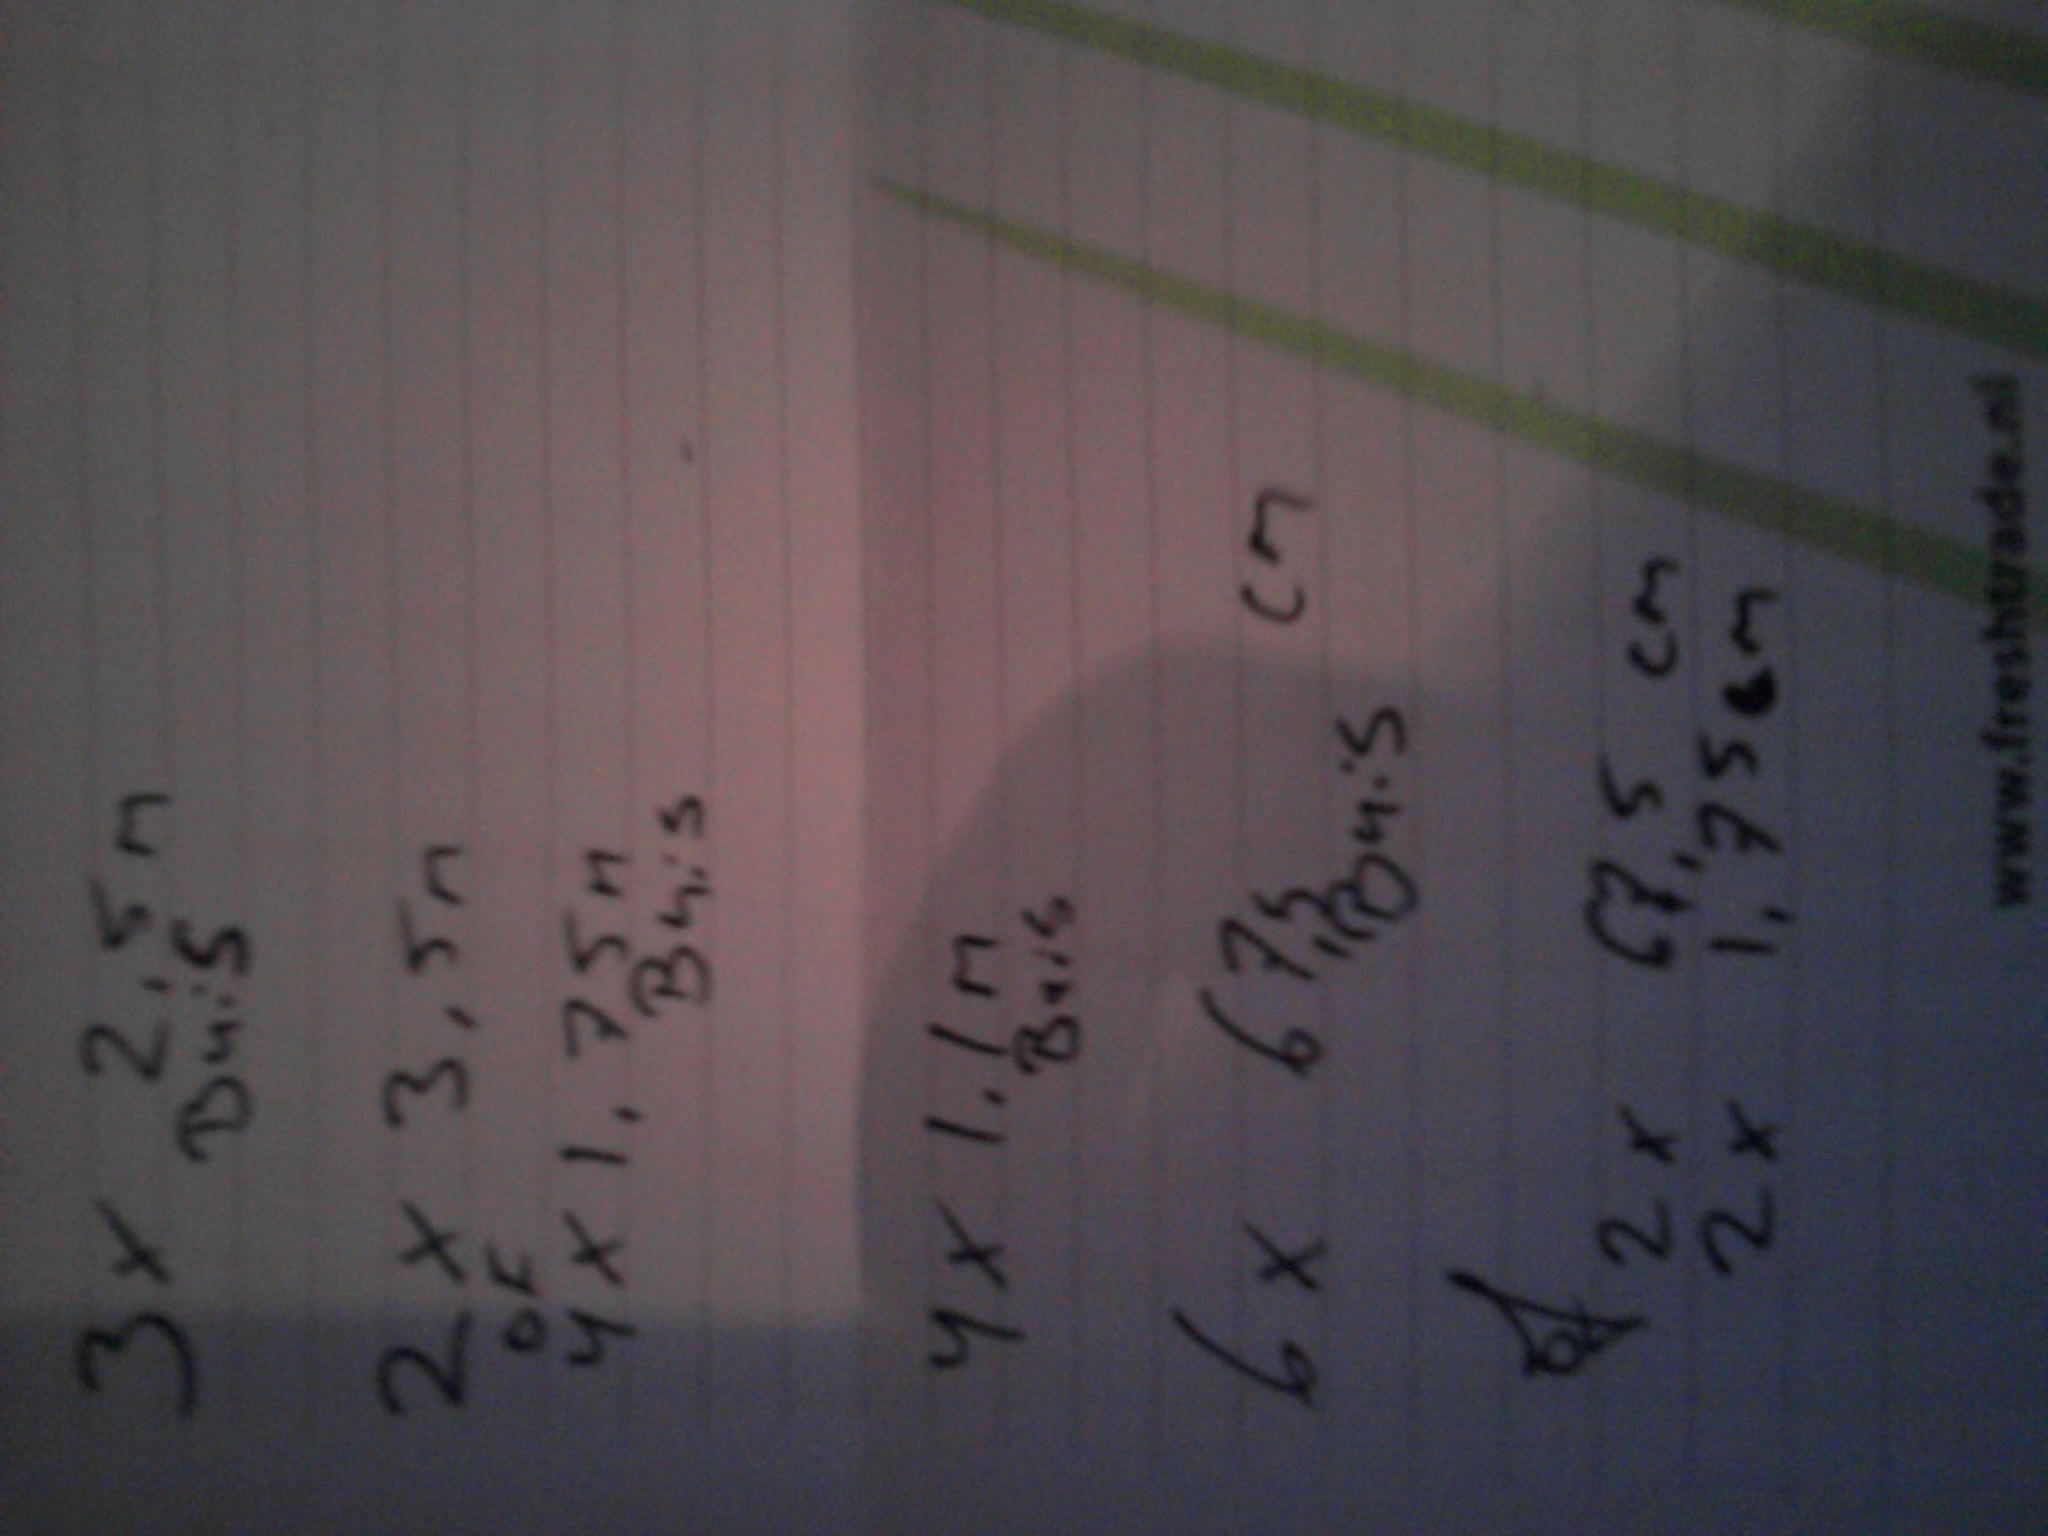 3 x 2,5 m
Buis
2 x 3,5 m
OF
4 x 1,75 m
Buis
4 x 1,1 m
Buis
6 x 67,5 cm
Buis
2 x 67,5 cm
2 x 1,75 m
www.freshtrade.nl